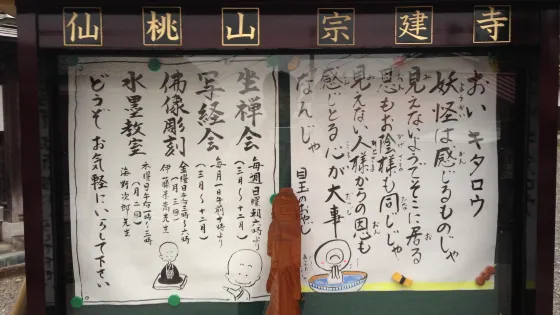 仙桃山宗建寺
おい キタロウ
妖怪は感じるものじゃ
見えないようでそこに居る
恩もお陰様も同じじゃ
見えない人様からの恩も
感じとる心が大事
なんじゃ
目玉のおやじ
坐禅会
毎週日曜朝六時より
(三月〜十二月)
写経会
毎月一日午前十時より
(三月〜十二月)
佛像彫刻
金曜日午后三時〜六時
(月三回)
水墨教室
木曜日午后一時〜三時
(月二回)
どうぞ お気軽にいらして下さい